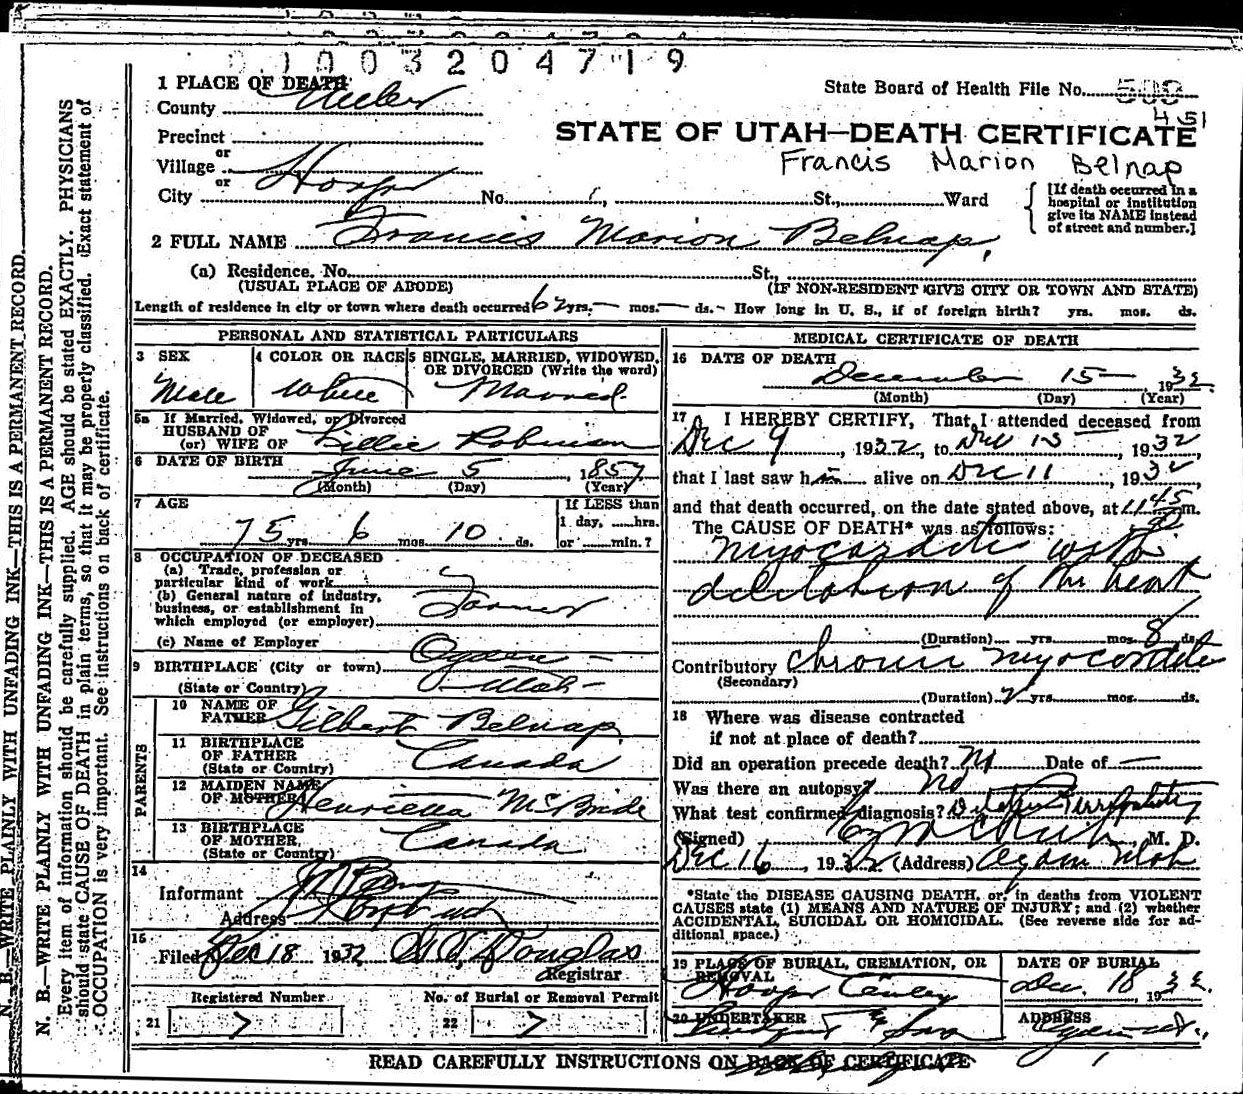 0 1 0 0 3 2 0 4 7 1 9
1 PLACE OF DEATH
County Weber
State Board of Health File No. 500
451
Precinct
STATE OF UTAH—DEATH CERTIFICATE
or
Village
Francis Marion Belnap
or
City Hooper No. St., Ward
[If death occurred in a hospital or institution give its NAME instead of street and number.]
2 FULL NAME Francis Marion Belnap.
(a) Residence. No. St.,
(USUAL PLACE OF ABODE) (IF NON-RESIDENT GIVE CITY OR TOWN AND STATE)
Length of residence in city or town where death occurred 62 yrs. — mos. — ds. - How long in U. S., if of foreign birth? yrs. mos. ds.
PERSONAL AND STATISTICAL PARTICULARS
3 SEX
Male
4 COLOR OR RACE
White
5 SINGLE, MARRIED, WIDOWED, OR DIVORCED (Write the word)
Married.
5a If Married, Widowed, or Divorced
HUSBAND OF
(or) WIFE OF Lillie Robinson
6 DATE OF BIRTH June 5, 1857
(Month) (Day) (Year)
7 AGE
75 yrs. 6 mos. 10 ds.
If LESS than
1 day, ......hrs.
or ......min.?
8 OCCUPATION OF DECEASED
(a) Trade, profession or
particular kind of work
(b) General nature of industry,
business, or establishment in
which employed (or employer) Farmer
(c) Name of Employer
9 BIRTHPLACE (City or town) Ogden —
(State or Country) Utah —
PARENTS
10 NAME OF
FATHER Gilbert Belnap.
11 BIRTHPLACE
OF FATHER Canada
(State or Country)
12 MAIDEN NAME
OF MOTHER Henrietta McBride
13 BIRTHPLACE
OF MOTHER, Canada
(State or Country)
14
Informant
Address
15
Filed Dec 18 1932 Douglas
Registrar
Registered Number
21 7
No. of Burial or Removal Permit
22 7
MEDICAL CERTIFICATE OF DEATH
16 DATE OF DEATH
December 15 — 1932.
(Month) (Day) (Year)
17 I HEREBY CERTIFY, That I attended deceased from
Dec 9, 1932, to Dec 15, 1932,
that I last saw him alive on Dec 11, 1932,
and that death occurred, on the date stated above, at 11:45 m.
The CAUSE OF DEATH* was as follows:
myocarditis with
dilitation of the heart
(Duration) yrs. mos. 8 ds.
Contributory Chronic myocarditis
(Secondary)
(Duration) yrs. mos. ds.
18 Where was disease contracted
if not at place of death?
Did an operation precede death? No Date of —
Was there an autopsy? No
What test confirmed diagnosis?
(Signed) M. D.
Dec 16, 1932 (Address) Ogden Utah
*State the DISEASE CAUSING DEATH, or, in deaths from VIOLENT
CAUSES state (1) MEANS AND NATURE OF INJURY; and (2) whether
ACCIDENTAL, SUICIDAL OR HOMICIDAL. (See reverse side for ad-
ditional space.)
19 PLACE OF BURIAL, CREMATION, OR
REMOVAL
Hooper
DATE OF BURIAL
Dec. 18, 1932.
20 UNDERTAKER
& Son
ADDRESS
Ogden
READ CAREFULLY INSTRUCTIONS ON BACK OF CERTIFICATE
N. B.—WRITE PLAINLY WITH UNFADING INK—THIS IS A PERMANENT RECORD.
N. B.—WRITE PLAINLY WITH UNFADING INK—THIS IS A PERMANENT RECORD.
Every item of information should be carefully supplied. AGE should be stated EXACTLY. PHYSICIANS
should state CAUSE OF DEATH in plain terms, so that it may be properly classified. Exact statement of
OCCUPATION is very important. See instructions on back of certificate.